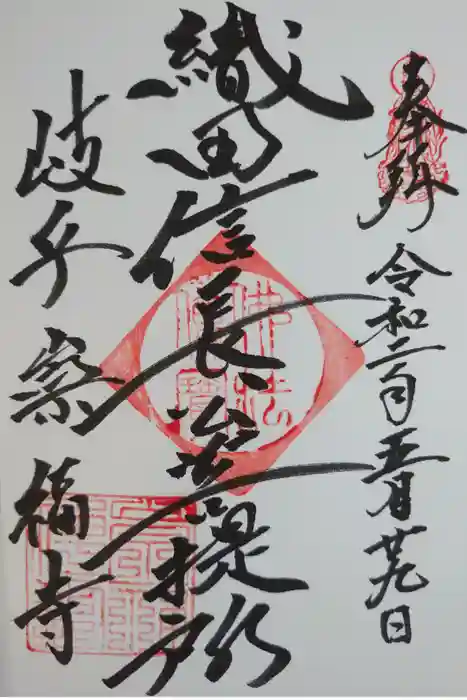 奉拝 令和二年五月廿九日
織田信長公菩提所
岐阜 崇福寺
佛法
僧寶